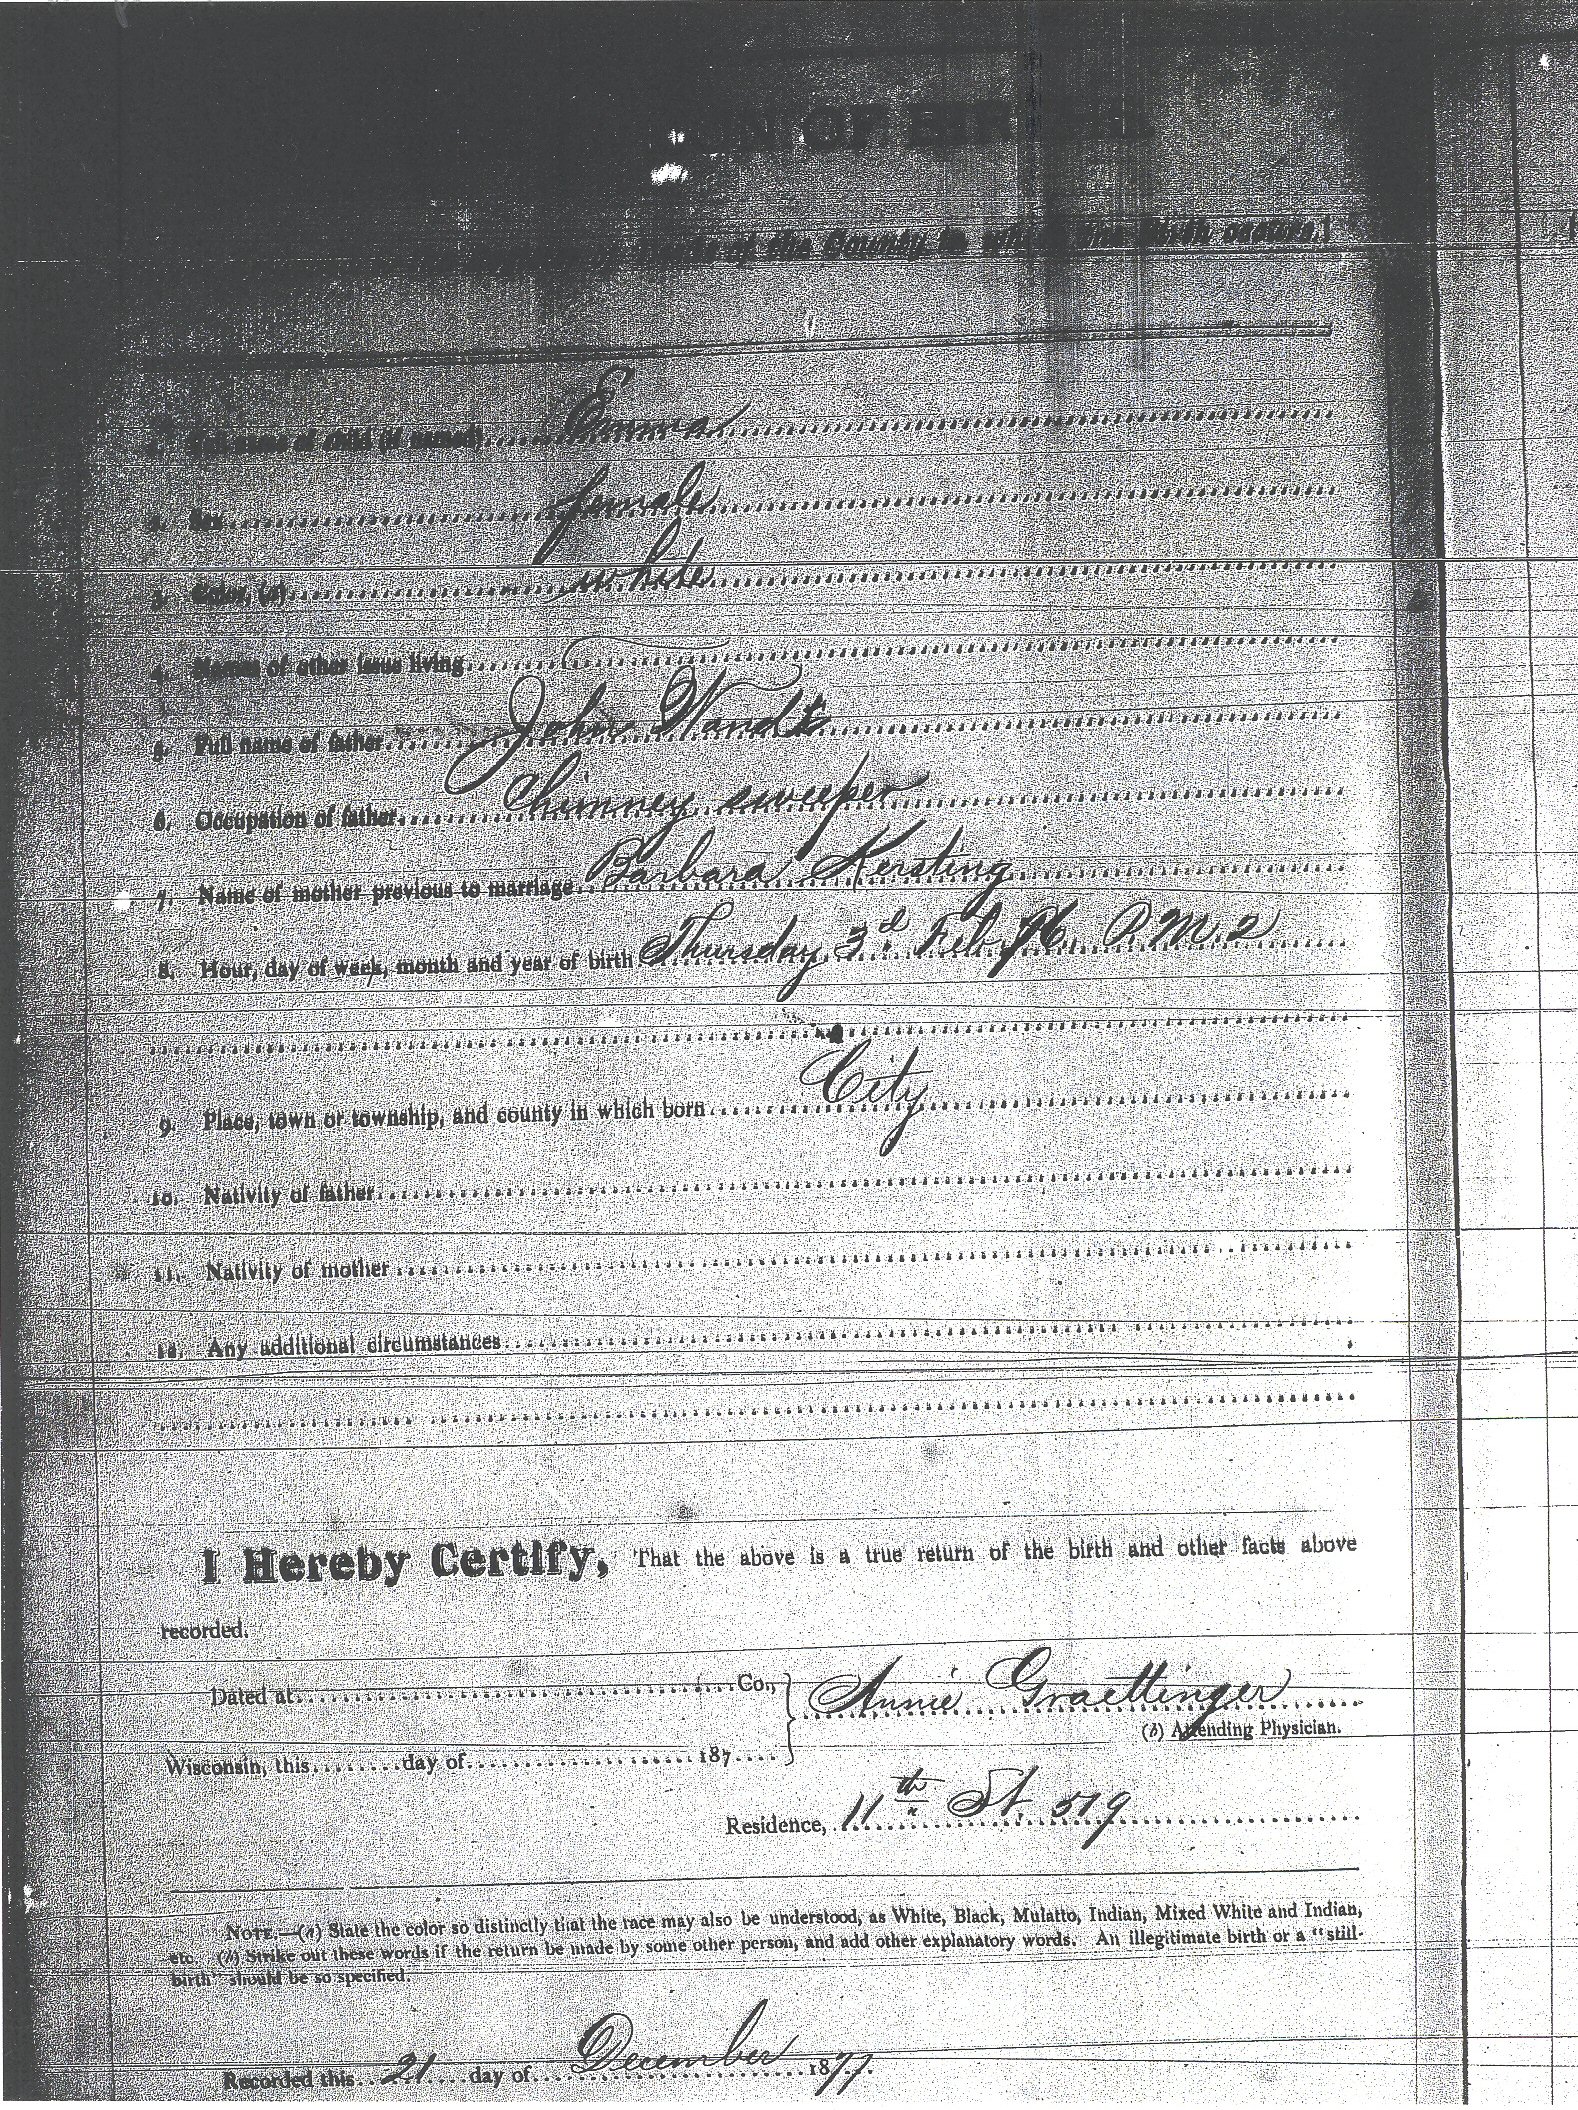 OF
of the County in which the birth occurs.
1. Full name of child (if named) Emma
2. Sex female
3. Color, (a) white
4. Names of other issue living
5. Full name of father John Wandt
6. Occupation of father Chimney sweeper
7. Name of mother previous to marriage Barbara Kersting
8. Hour, day of week, month and year of birth Thursday, 3d Feb. 76. P.M. 2
City
9. Place, town or township, and county in which born
10. Nativity of father
11. Nativity of mother
12. Any additional circumstances
I Hereby Certify, That the above is a true return of the birth and other facts above
recorded.
Dated at Co., Annie Graettinger
(b) Attending Physician.
Wisconsin, this day of 187
Residence, 11th St. 519
NOTE.—(a) State the color so distinctly that the race may also be understood, as White, Black, Mulatto, Indian, Mixed White and Indian,
etc. (b) Strike out these words if the return be made by some other person, and add other explanatory words. An illegitimate birth or a "still-
birth" should be so specified.
Recorded this 21 day of December 1877.